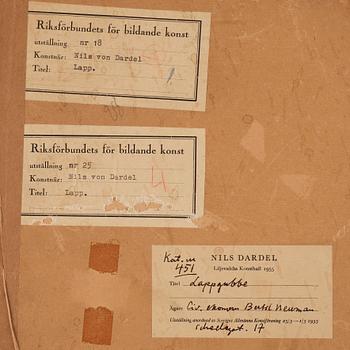 Riksförbundets för bildande konst
utställning nr 18
Konstnär: Nils von Dardel
Titel: Lapp.
Riksförbundets för bildande konst
utställning nr 25
Konstnär: Nils von Dardel
Titel: Lapp.
Kat. nr
451
NILS DARDEL
Liljevalchs Konsthall 1955
Titel Lappgubbe
Ägare Civ. ekonom Bertil Neuman
Utställning anordnad av Sveriges Allmänna Konstförening 25/3—1/5 1955
17